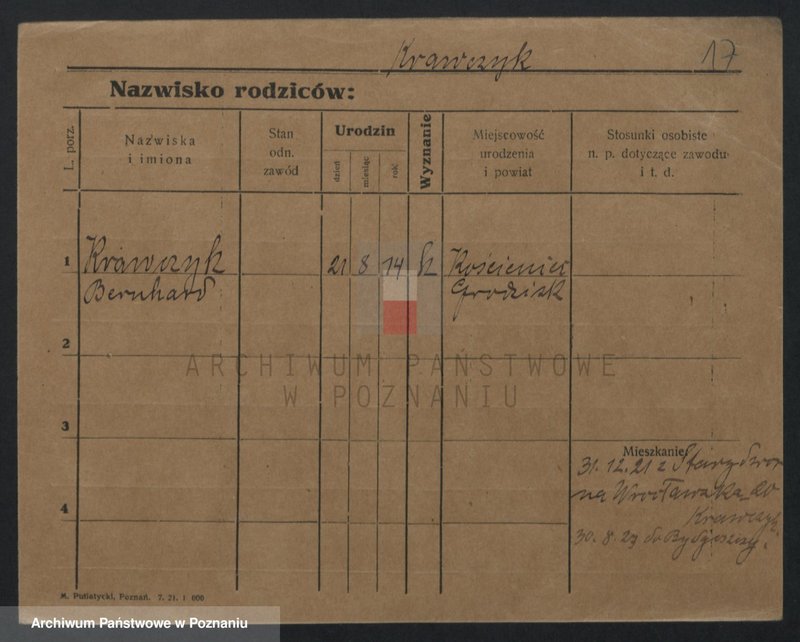 Krawczyk 17
Nazwisko rodziców:
L. porz.
Nazwiska
i imiona
Stan
odn.
zawód
Urodzin
dzień
miesiąc
rok
Wyznanie
Miejscowość
urodzenia
i powiat
Stosunki osobiste
n. p. dotyczące zawodu
i t. d.
1 Krawczyk 21 8 14 Kościeniec
Bernhard Grodzisk
2
ARCHIWUM PAŃSTWOWE
W POZNANIU
3
Mieszkanie
31.12.21 z Stary Dwor
na Wrocławska 20
Krawczyk
4
30.8.27 do Bydgoszczy
M. Putiatycki, Poznań. 7. 21. 1 000
Archiwum Państwowe w Poznaniu